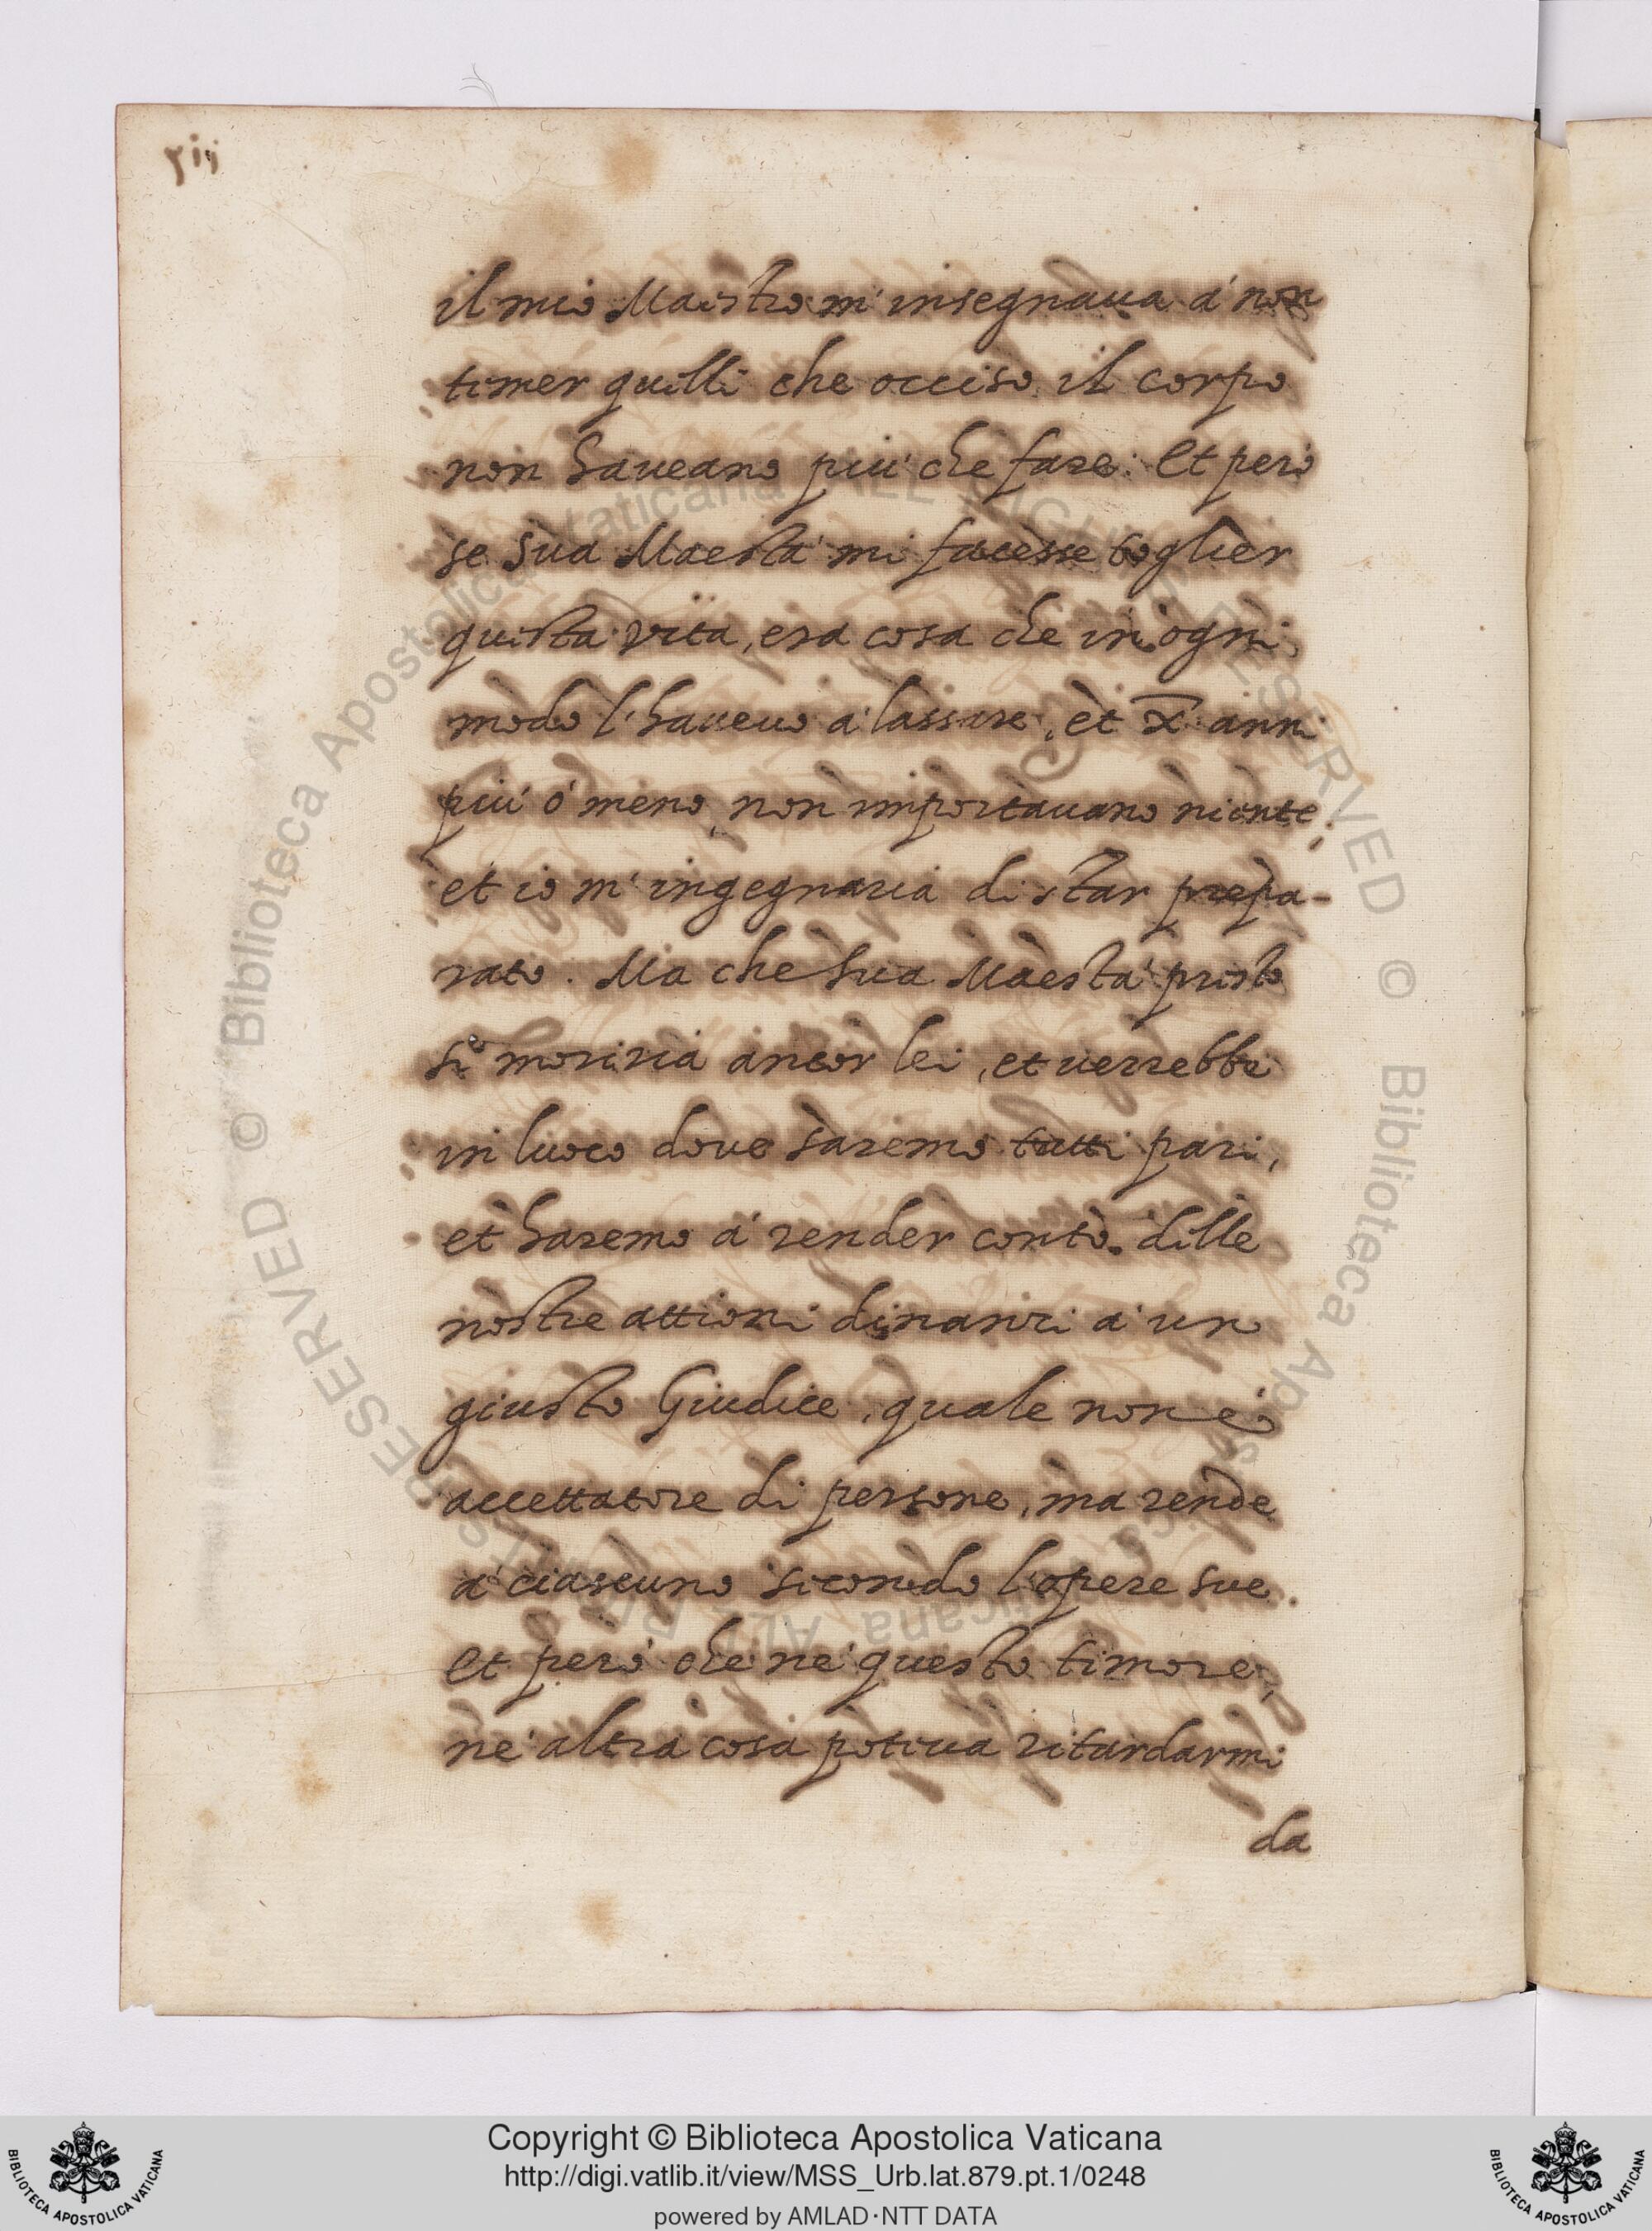 il mio Maestro m'insegnaua a' non
temer quelli che occiso il corpo
non haueano piu' che fare. Et però
se Sua Maestà mi facesse toglier
questa vita, era cosa che in ogni
modo l'haueuo a' lassare, et x̄ anni
piu' ó meno, non importauano niente,
et io m'ingegnaria di star prepa-
rato. Ma che Sua Maestà presto
si moriria ancor lei, et uerrebbe
in luoco doue saremo tutti pari,
et haremo a' render conto delle
nostre attioni dinanzi a' un
giusto Giudice, quale non é
accettatore di persone, ma rende
a' ciascuno secondo l'opere sue.
Et però che né questo timore,
né altra cosa poteua ritardarmi
da
Copyright © Biblioteca Apostolica Vaticana
http://digi.vatlib.it/view/MSS_Urb.lat.879.pt.1/0248
powered by AMLAD·NTT DATA
BIBLIOTECA APOSTOLICA VATICANA
BIBLIOTECA APOSTOLICA VATICANA